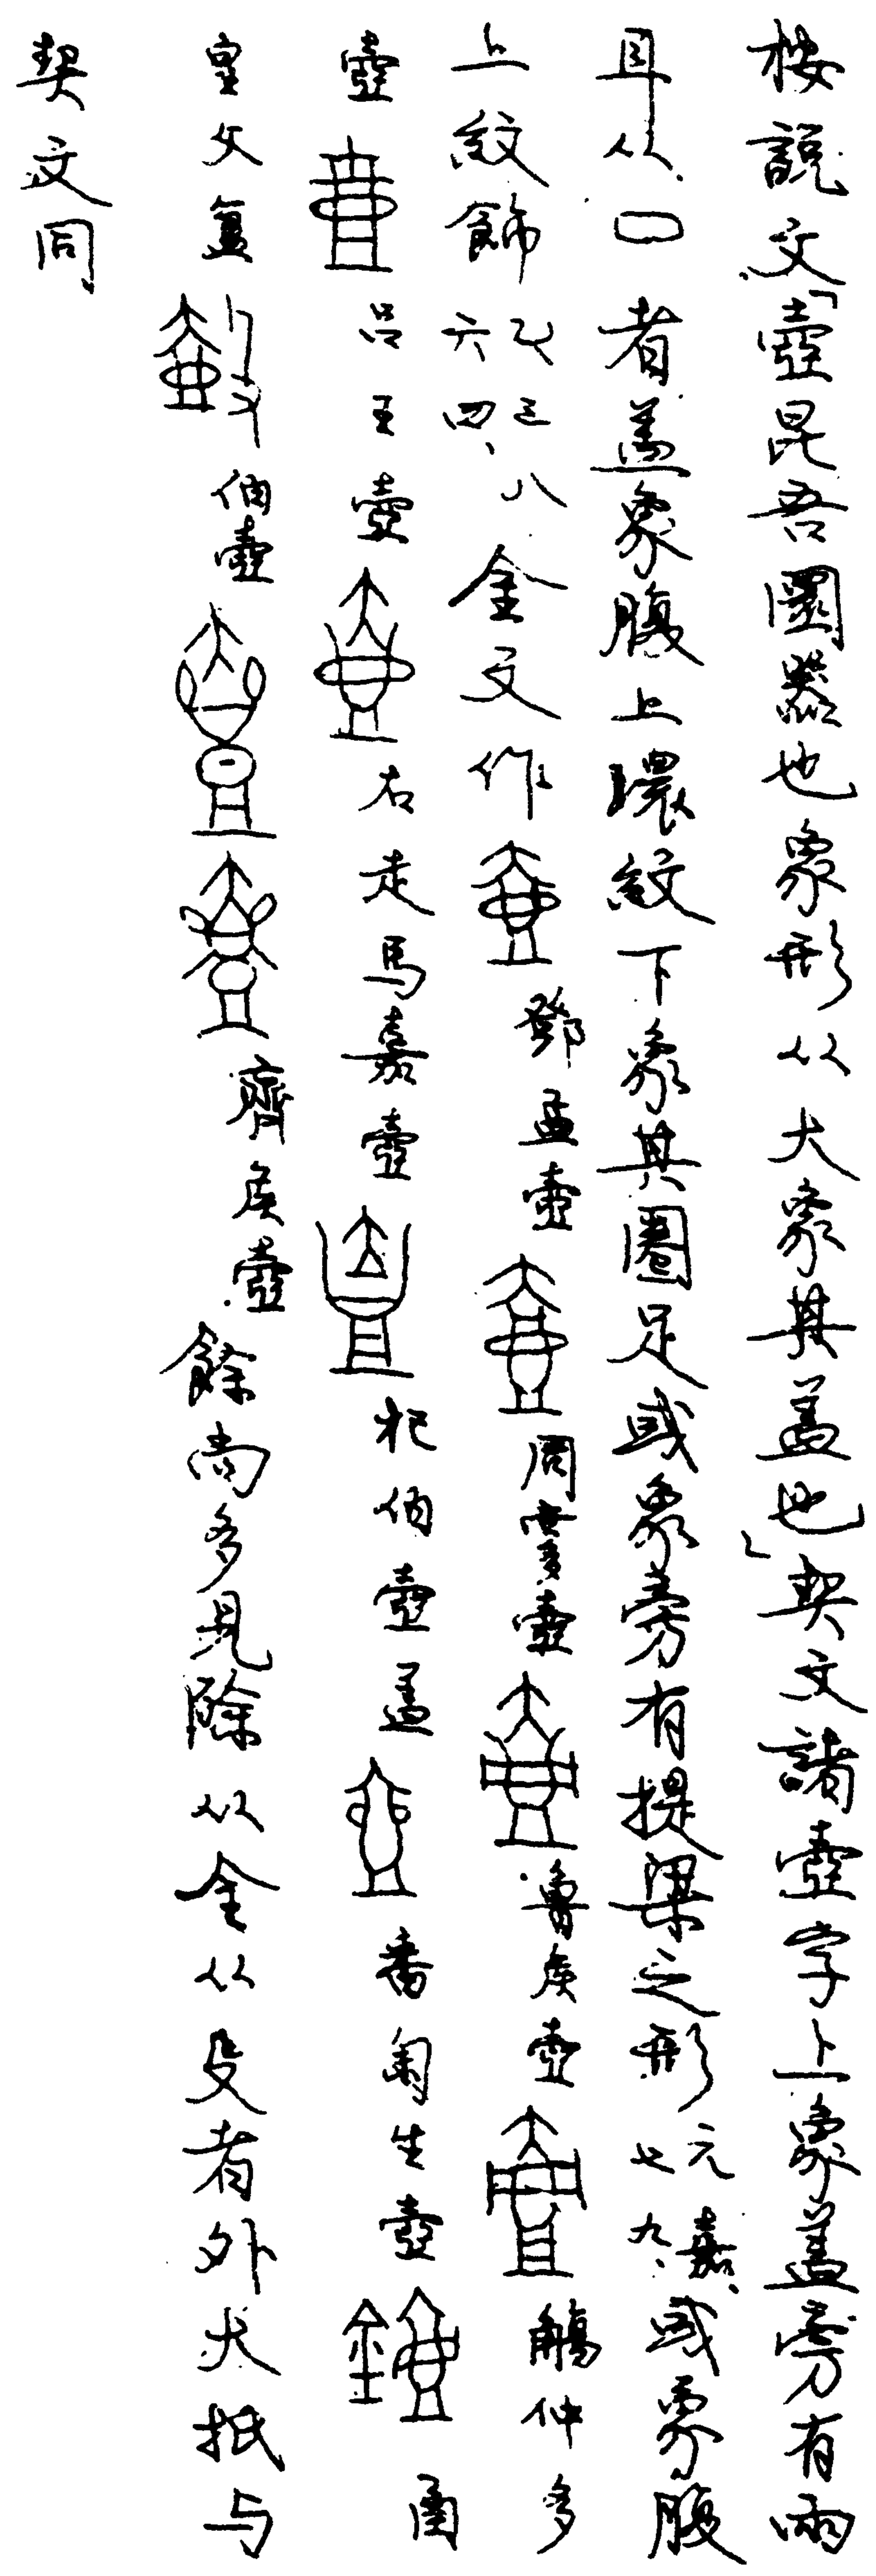 按說文「壺昆吾圜器也象形从大象其蓋也」契文諸壺字上象蓋旁有兩
耳从口者蓋象腹上環紋下象其圈足或象旁有提梁之形元嘉七九、或象腹
上紋飾乙三八六四、金文作鄧孟壺周㝨壺魯侯壺觴仲多
壺呂王壺右走馬嘉壺杞伯壺蓋番匊生壺圅
皇父簋伯壺齊侯壺餘尚多見除从金从殳者外大抵与
契文同